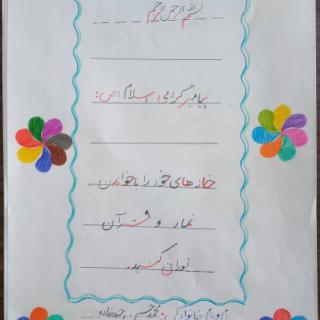 بسم الله الرحمن الرحیم
پیامبر گرامی اسلام (ص):
خانه‌های خود را با خواندن
نماز و قرآن
نورانی کنید.
نام و نام خانوادگی: محمد حسین حیدرزاده